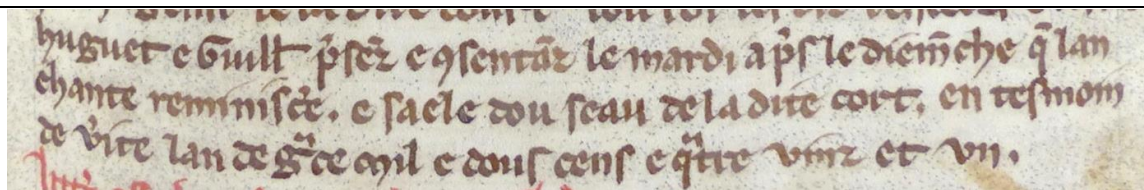 huguet e Guill̃ p̃sẽz e ꝯsentãz le mardi ap̃s le diem̃che q̃ lan
chante reminisc̃e. e saele dou seau de la dite cort. en tesmoin
de ṽite lan de gᵃce mil e dous cens e qᵃtre vinz et vn.